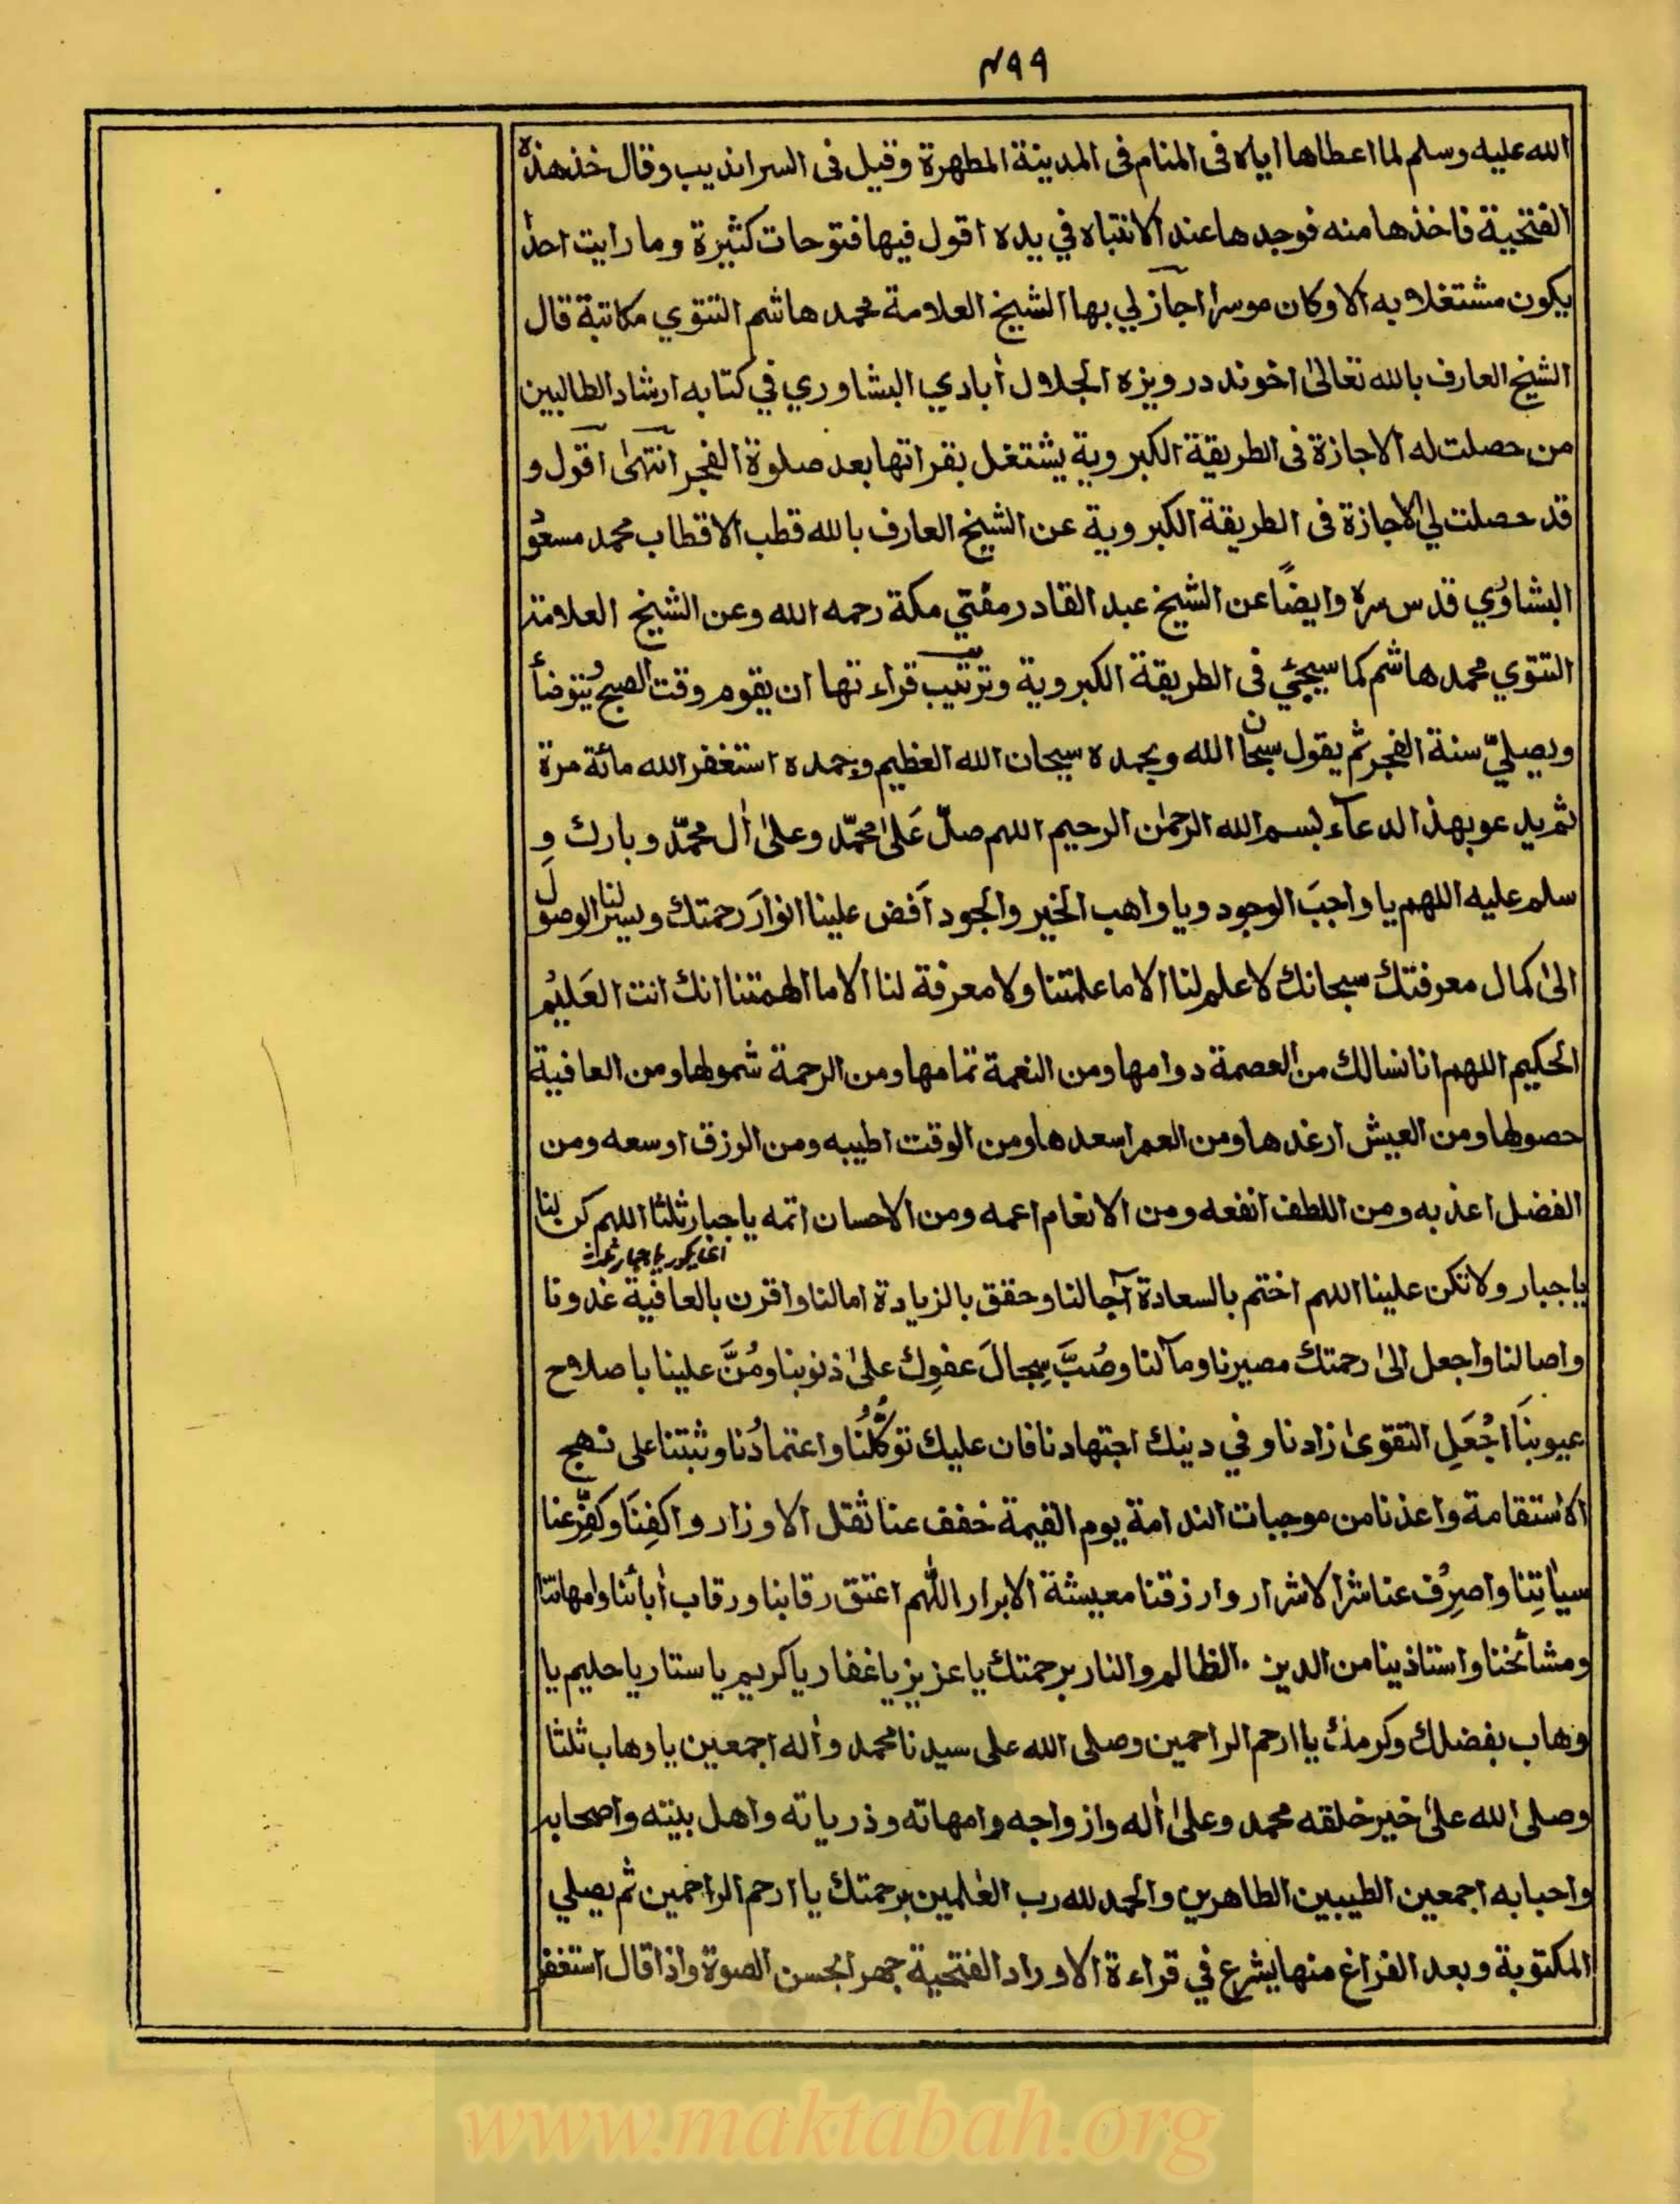 ۴۹۹
الله عليه وسلم لما اعطاها اياه فى المنام فى المدينة المطهرة وقيل فى السرانديب وقال خذ هذه
الفتحية فاخذها منه فوجدها عند الانتباه في يده اقول فيها فتوحات كثيرة وما رايت احدا
يكون مشتغلا به الا وكان موسرا اجاز لي بها الشيخ العلامة محمد هاشم التتوي مكاتبة قال
الشيخ العارف بالله تعالىٰ اخوند درويزه الجلال اٰبادي البشاوري في كتابه ارشاد الطالبين
من حصلت له الاجازة فى الطريقة الكبروية يشتغل بقراتها بعد صلوة الفجر انتهىٰ اقول و
قد حصلت لي الاجازة فى الطريقة الكبروية عن الشيخ العارف بالله قطب الاقطاب محمد مسعود
البشاوري قدس سره وايضًا عن الشيخ عبد القادر مفتي مكة رحمه الله وعن الشيخ العلامة
التتوي محمد هاشم كما سيجئ فى الطريقة الكبروية وترتيب قراءتها ان يقوم وقت الصبح يتوضأ
ويصليّ سنة الفجر ثم يقول سبحان الله وبحمده سبحان الله العظيم وبحمده استغفر الله مائة مرة
ثم يدعو بهذا الدعآء بسم الله الرحمٰن الرحيم اللهم صلّ عَلىٰ محمّد وعلىٰ اٰل محمّد وبارك و
سلم عليه اللهم يا واجبَ الوجود ويا واهب الخير والجود اَفض علينا انوارَ رحمتك ويسر لنا الوصولَ
الىٰ كمال معرفتك سبحانك لا علم لنا الا ما علمتنا ولا معرفة لنا الا ما الهمتنا انك انت العَليُم
الحكيم اللهم انا نسالك من العصمة دوامها ومن النعمة تمامها ومن الرحمة شمولها ومن العافية
حصولها ومن العيش ارغدها ومن العمر اسعدها ومن الوقت اطيبه ومن الرزق اوسعه ومن
الفضل اعذبه ومن اللطف انفعه ومن الانعام اعمه ومن الاحسان اتمه يا جبار ثلثا اللهم كن لنا
يا جبار ولا تكن علينا اللهم اختم بالسعادة آجالنا وحقق بالزيادة امالنا واقرن بالعافية غدونا
واصالنا واجعل الىٰ رحمتك مصيرنا ومآلنا وصُبَّ سِجالَ عفوِك علىٰ ذنوبنا ومُنَّ علينا باصلاح
عيوبنَا اجْعَلِ التقوىٰ زادنا وفي دينك اجتهادنا فان عليك توكُّلُنا واعتمادُنا وثبتنا على نهج
الاستقامة واعذنا من موجبات الندامة يوم القيمة خفف عنا ثقل الاوزار واكفِنَا وكفِّر عنا
سياٰتِنا واصرِف عنا شر الاشرار وارزقنا معيشة الابرار اللّٰهم اعتق رقابنا ورقاب اٰبائنا وامهاتنا
ومشائخنا واستاذينا من الدين والظالم والنار برحمتك يا عزيز يا غفار يا كريم يا ستار يا حليم يا
وهاب بفضلك وكرمك يا ارحم الراحمين وصلى الله على سيدنا محمد واٰله اجمعين يا وهاب ثلثا
وصلى الله علىٰ خير خلقه محمد وعلىٰ اٰله وازواجه وامهاته وذرياته واهل بيته واصحابه
واحبابه اجمعين الطيبين الطاهرين والحمد لله رب العٰلمين برحمتك يا ارحم الراحمين ثم يصلي
المكتوبة وبعد الفراغ منها يشرع في قراءة الاوراد الفتحية جهرا بحسن الصوة واذا قال استغفر
www.maktabah.org